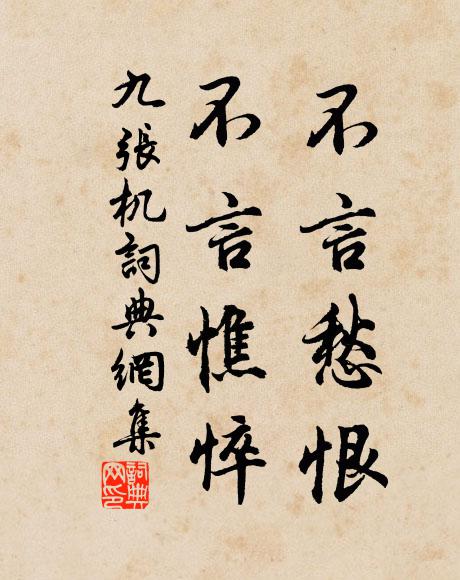 不言愁恨
不言憔悴
九張机詞典網集
詞典网印